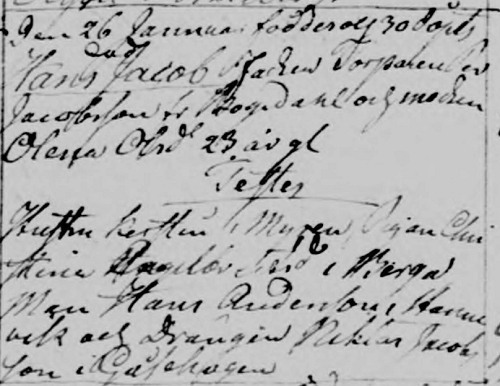 Den 26 Januari födder och 30 döpts
Hans Jacob Fadren Torparen Per
Jacobsson fr Bogedahl och modren
Olena Olsd 23 år gl
Testes
Hustru Kerstin i Myren, Pigan Chri
stina i Berga
Man Hans Andersson i Hanne
vik och Drängen Niklas Jacobs
son i Gåsehagen